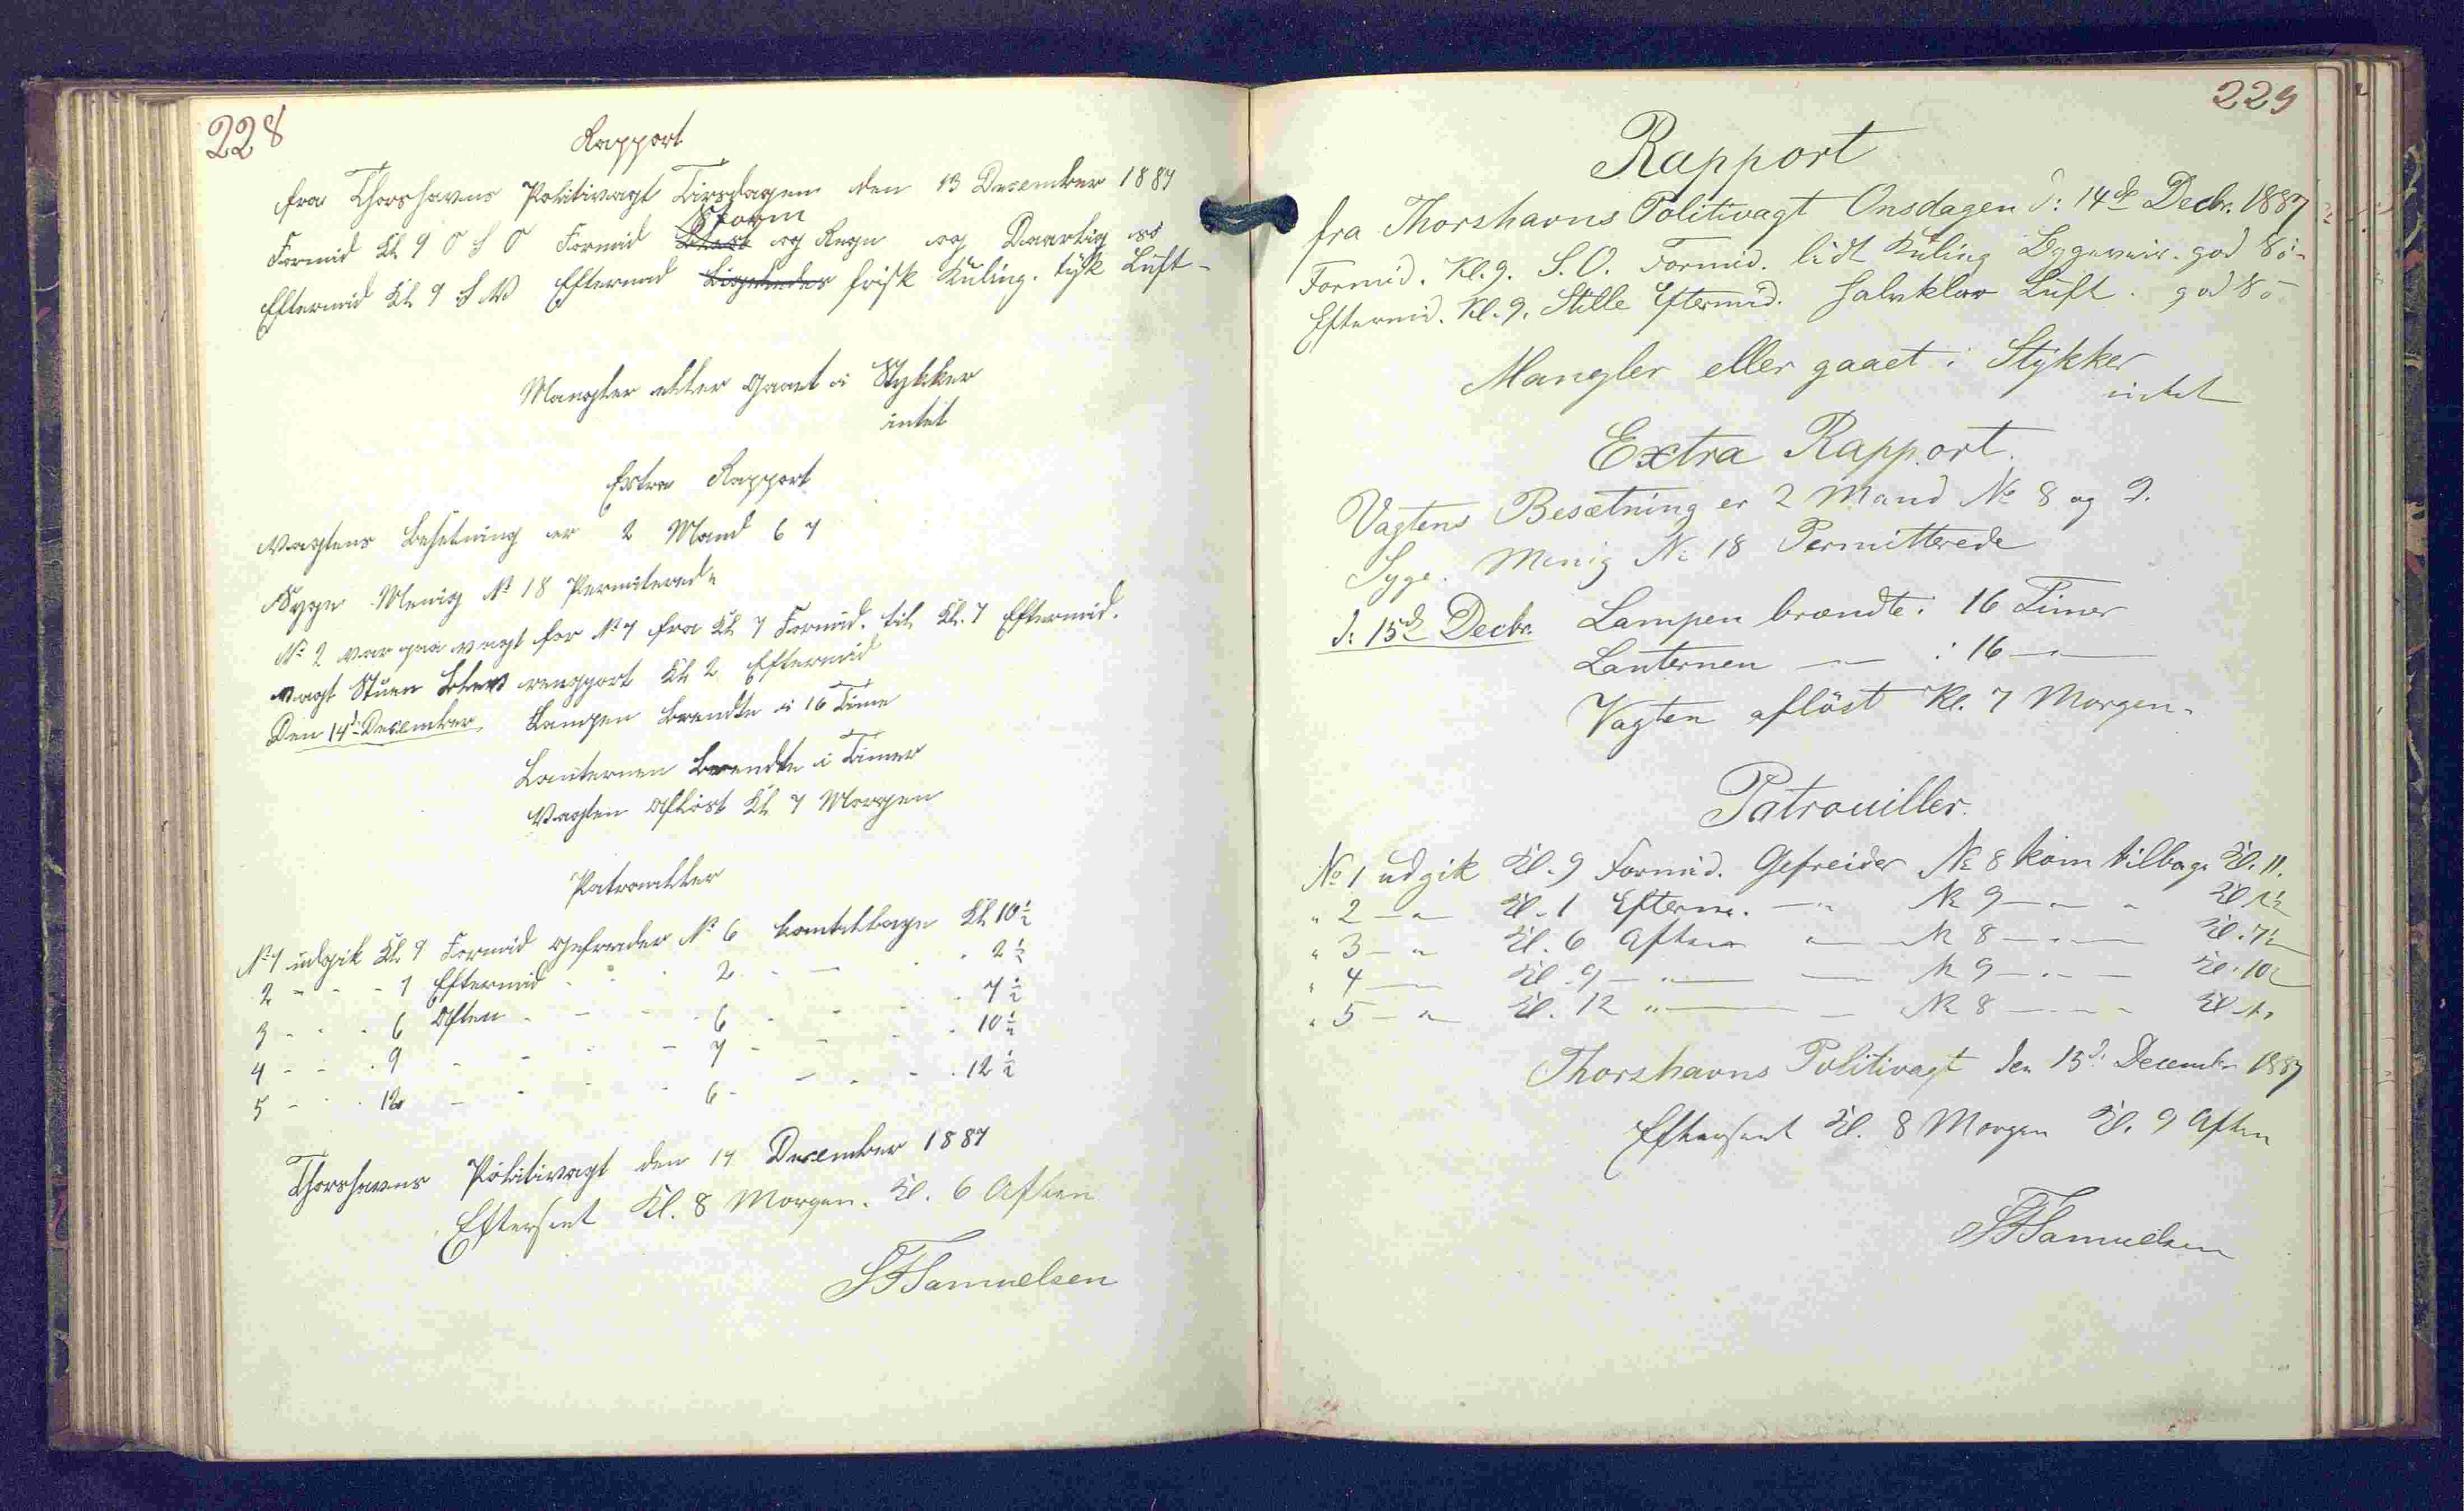 228
Rapport
fra Thorshavns Politivagt Tirsdagen den 13 December 1887
Storm
Formid Kl 9 O S O Formid og Regn og Daarlig sö
Eftermid Kl 9 S V Eftermd frisk Kuling. tyk Luft -
Mangler eller Gaaet i Stykker
intet
Extra Rapport
Vagtens Besetning er 2 Mand 6 7
Syge Menig No 18 Permiterede
No 2 var paa vagt for No 7 fra Kl 7 Formid. til Kl. 7 Eftermid.
Vagt Stuen blev rengport Kl 2 Eftermid
Den 14d December. Lampen brendte i 16 Time
Lanternen brendte i Timer
Vagten Aflöst Kl 7 Morgen
Patrouller
No 1 udgik Kl 9 Formid Gefreider No 6 kom tilbage Kl 10½
2 - - - 1 Eftermid - - 2 - - - 2½
3 - - - 6 Aften - - - 6 - - - 7½
4 - - - 9 - - - - 7 - - - 10½
5 - - - 12 - - - - 6 - - - 12½
Thorshavns Politivagt den 14 December 1887
Efterseet Kl. 8 Morgen. Kl. 6 Aften
SFSamuelsen
229
Rapport
fra Thorshavns Politivagt Onsdagen d: 14de Decbr. 1887
Formid. Kl. 9. S.O. Formid. lidt Kuling Bygeveir. god Sö-
Eftermid. Kl. 9. Stille Eftermid. halvklar Luft. god Sö
Mangler eller gaaet i Stykker
intet
Extra Rapport.
Vagtens Besætning er 2 Mand No 8 og 9.
Syge. Menig No 18 Permitterede
d: 15d Decbr. Lampen brændte: 16 Timer
Lanternen — " — : 16 — " —
Vagten aflöst Kl. 7 Morgen.
Patrouiller.
No 1 udgik Kl. 9 Formid. Gefreider No 8 kom tilbage Kl. 11.
" 2 — " — Kl. 1 Efterm. — " No 9 — " — " Kl 1½
" 3 — " Kl. 6 Aften " — No 8 — " — Kl. 7½
" 4 — Kl. 9 — " — — No 9 — " — Kl. 10½
" 5 — " — Kl. 12 " — — No 8 — " — " Kl 1.
Thorshavns Politivagt den 15d. Decembr 1887
Efterseet Kl. 8 Morgen Kl. 9 Aften
SFSamuelsen